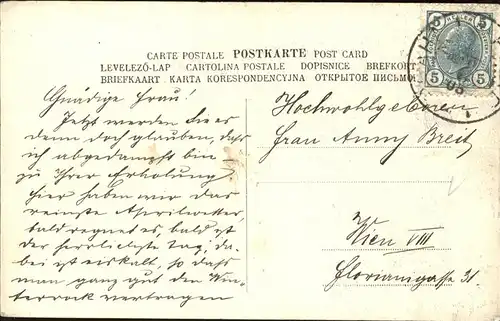 CARTE POSTALE POSTKARTE POST CARD
LEVELEZŐ-LAP CARTOLINA POSTALE DOPISNICE BREFKORT
BRIEFKAART KARTA KORESPONDENCYJNA ОТКРЫТОЕ ПИСЬМО
5 HELLER 5
5 5
Gnädige Frau!
Jetzt werden Sie es
denn doch glauben, daß
ich abgedampft bin
zu Ihrer Erholung
hier haben wir das
reinste Aprilwetter,
bald regnet es, bald ist
der herrlichste Tag; da-
bei ist eiskalt, so daß
man ganz gut den Win-
terrock vertragen
Hochwohlgeboren
Frau Anny Breit
Wien VIII
Florianigasse 31.